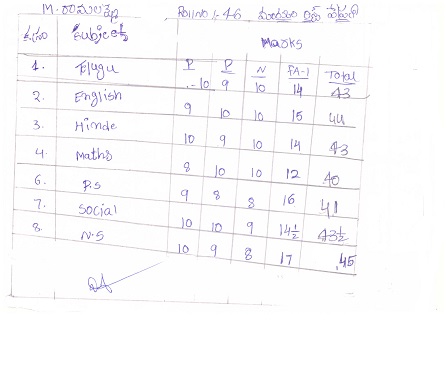 Roll no :- 46
Subjects Marks
1. తెలుగు P P N FA-1 Total
10 9 10 14 43
2. English
9 10 10 15 44
3. Hinde
10 9 10 14 43
4. Maths
8 10 10 12 40
6. P.S
9 8 8 16 41
7. Social
10 10 9 14½ 43½
8. N.S
10 9 8 17 45